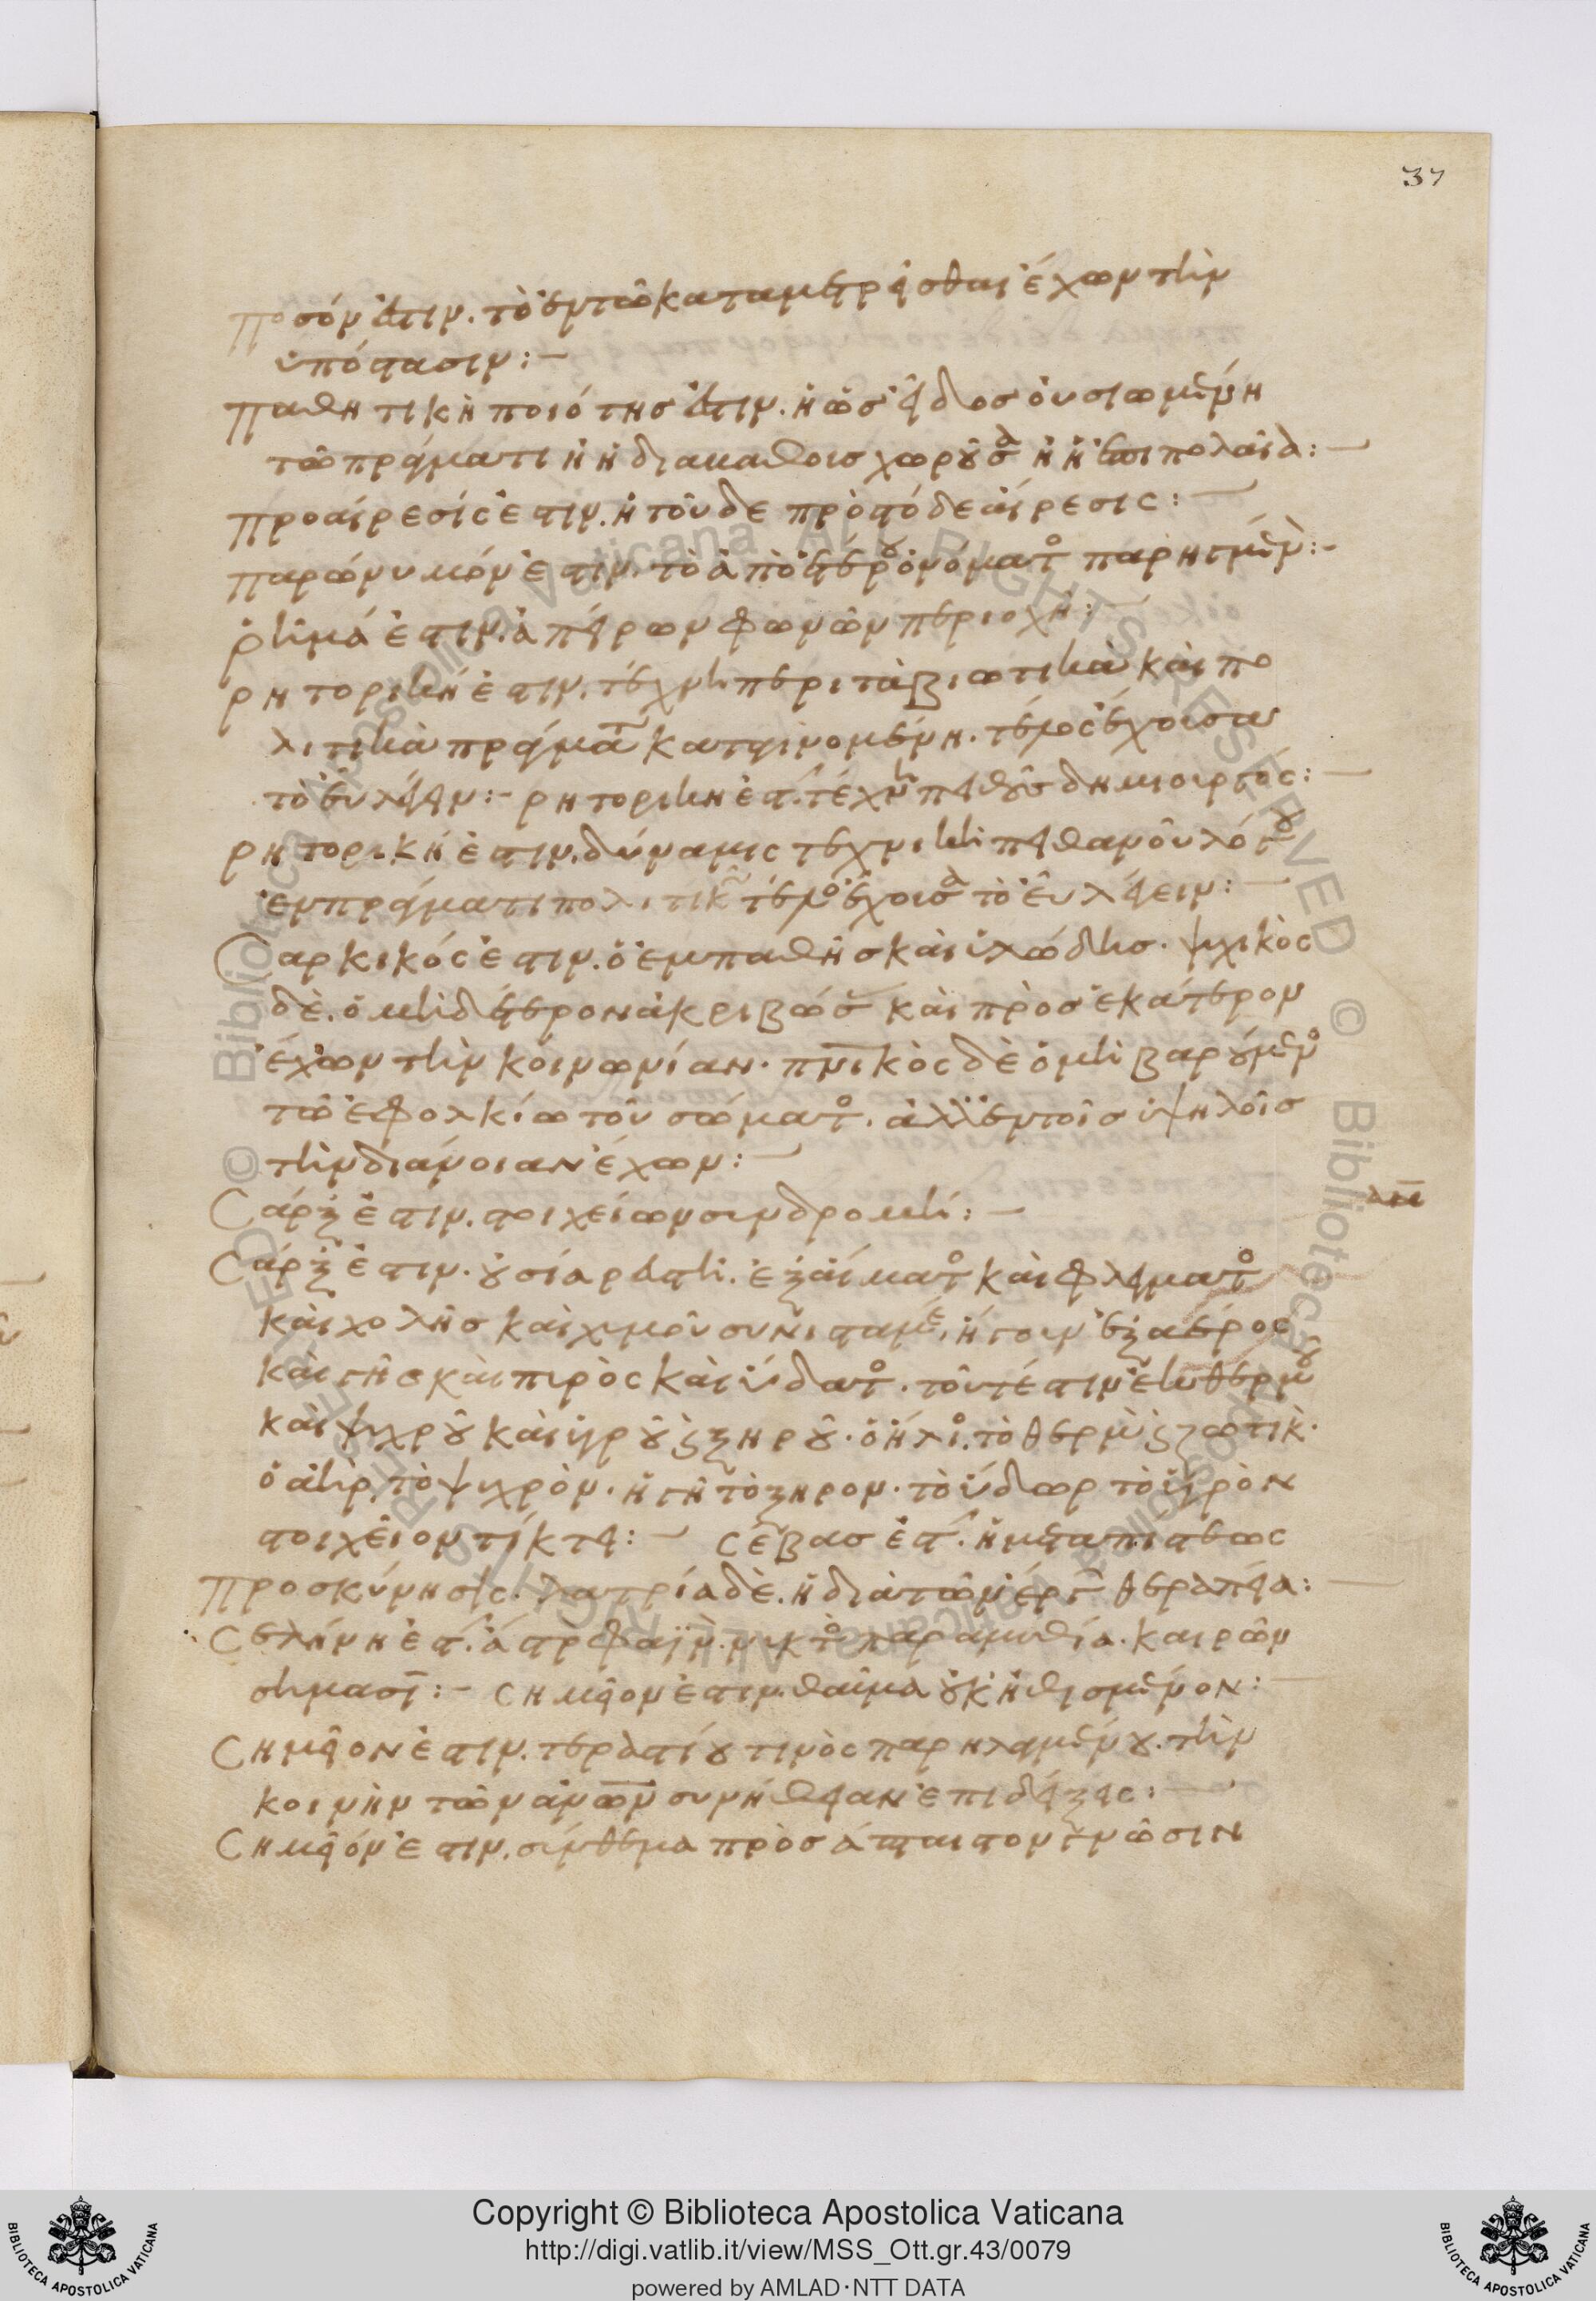 37
ποσόν ἐστιν. τὸ ἐν τῶ καταμετρεῖσθαι ἔχων τὴν
ὑπόστασιν:–
παθητικὴ ποιότης ἐστιν. ἡ ὡς εἶδος οὐσιωμένη
τῶ πράγματι ἢ ἡ δια βάθους χωροῦσα ἢ ἡ ἐπιπολάια:–
προαίρεσίς ἐστιν. ἡ τοῦδε πρὸ τόδε ἁίρεσις:–
παρώνυμόν ἐστιν. τὸ ἀπὸ ἑτέρου ὀνόματ παρηγμέν:–
ῥῆμά ἐστιν. ἀπείρων φωνῶν περιοχή:–
ρητορική ἐστιν. τέχνη περι τὰ βιωτικὰ κὰι πο
λιτικὰ πράγματ καταγινομένη. τέλος ἔχουσα
τὸ εὖ λέγειν:– ρητορική ἐστ. τέχνη πειθοῦς δημιουργός:–
ρητορική ἐστιν. δύναμις τεχνικὴ πιθανοῦ λόγου
ἐν πράγματι πολιτικῶ τέλο ἔχουσα τὸ εὖ λέγειν:–
Σαρκικός ἐστιν. ὁ ἐμπαθὴς κὰι ὑλώδης. ψυχικὸς
δὲ. ὁ μὴ δέτερον ἀκριβῶς κὰι πρὸς ἑκάτερον
ἔχων τὴν κοινωνίαν. πνικὸς δὲ ὁ μὴ βαρούμενο
τῶ ἐφολκίω τοῦ σώματ. ἀλλ ἐν τοῖς ὑψηλοῖς
τὴν διάνοιαν ἔχων:–
Σάρξ ἐστιν. στοιχείων συνδρομή:–
Σάρξ ἐστιν. οὐσία ρευστὴ. ἐξ ἅιματο κὰι φλέγματο
κὰι χολῆς κὰι χυμοῦ συνισταμένη. ἤγουν ἐξ ἀέρος
κὰι γῆς κὰι πυρὸς κὰι ὕδατο. τοῦτέστιν ἐκ θερμοῦ
κὰι ψυχροῦ κὰι ὑγροῦ ξηροῦ. ὁ ἥλιο. τὸ θερμὸν ζωτικ.
ὁ ἀὴρ. τὸ ψυχρὸν. ἡ γῆ τὸ ξηρον. τὸ ὕδωρ τὸ ὑγρὸν
στοιχεῖον τίκτει:– Σέβας ἐστ. ἡ μετα πίστεως
προσκύνησις. λατρεία δὲ. ἡ διὰ τῶν ἔργ θεραπεία:–
Σελήνη ἐστ. ἄστρ φαϊν. νυκτὸ παραμυθία. καιρῶν
σημασι:– Σημεῖον ἐστιν. θαῦμα οὐκ εἰθισμένον:–
Σημεῖον ἐστιν. τεραστίου τινὸς παρηλαγμένου. τὴν
κοινὴν τῶν ἀνων συνήθειαν ἐπιδείξεις:–
Σημεῖόν ἐστιν. σύνθεμα πρὸς ἄπταιστον γνῶσιν
Copyright © Biblioteca Apostolica Vaticana
http://digi.vatlib.it/view/MSS_Ott.gr.43/0079
powered by AMLAD·NTT DATA
BIBLIOTECA APOSTOLICA VATICANA
BIBLIOTECA APOSTOLICA VATICANA